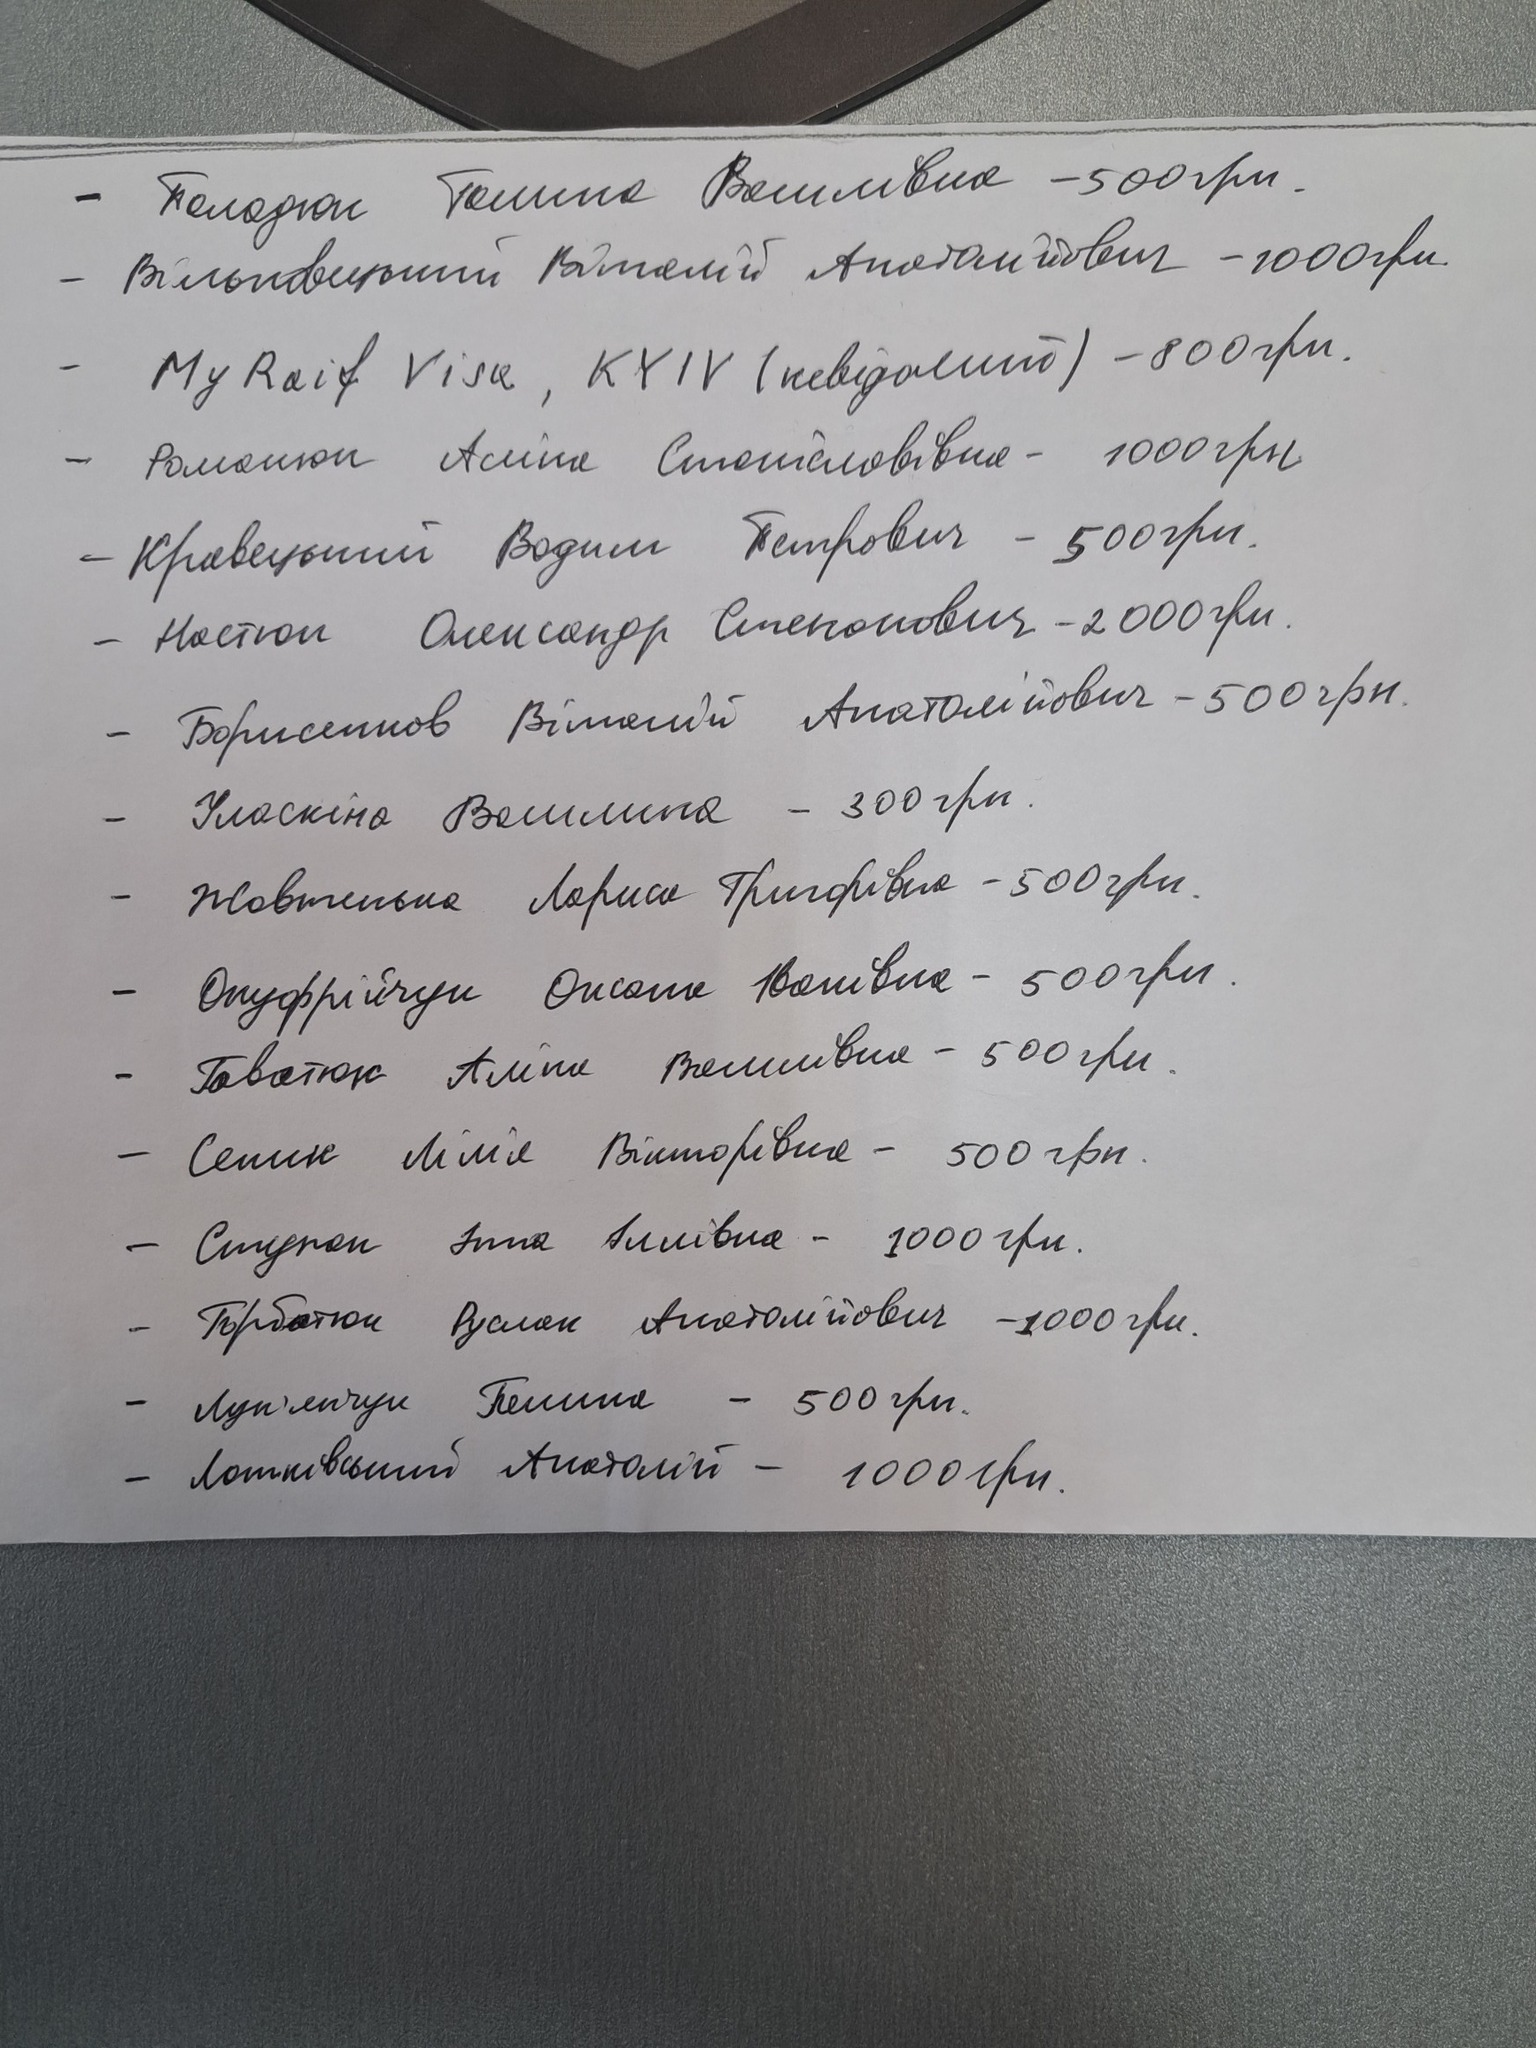 - Паладюк Галина Василівна - 500 грн.
- Вільновецький Віталій Анатолійович - 1000 грн.
- My Raif Visa, KYIV (невідомий) - 800 грн.
- Романюк Аліна Станіславівна - 1000 грн
- Кравецький Вадим Петрович - 500 грн.
- Настюк Олександр Степанович - 2000 грн.
- Борисенков Віталій Анатолійович - 500 грн.
- Уласкіна Василина - 300 грн.
- Жовтенька Лариса Григорівна - 500 грн.
- Онуфрійчук Оксана Іванівна - 500 грн.
- Гаватюк Аліна Василівна - 500 грн.
- Сеник Лілія Вікторівна - 500 грн.
- Інна Іллівна - 1000 грн.
- Горбатюк Руслан Анатолійович - 1000 грн.
- Лук'янчук Галина - 500 грн.
- Лотківський Анатолій - 1000 грн.